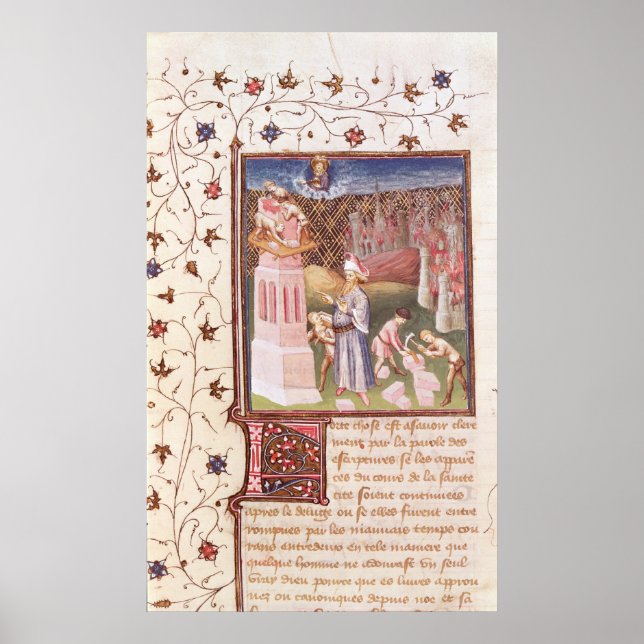 orte chose est asavoir clere
ment par la parole des
escriptures se les apparen
ces du cours de la saincte
cite soient continuees
apres le deluge ou se elles furent entre
rompues par les mauuais temps cou
rans entredeux en tele maniere que
quelque homme ne adourast vn seul
vray dieu pource que es liures approu
uez ou canoniques depuis noe et sa